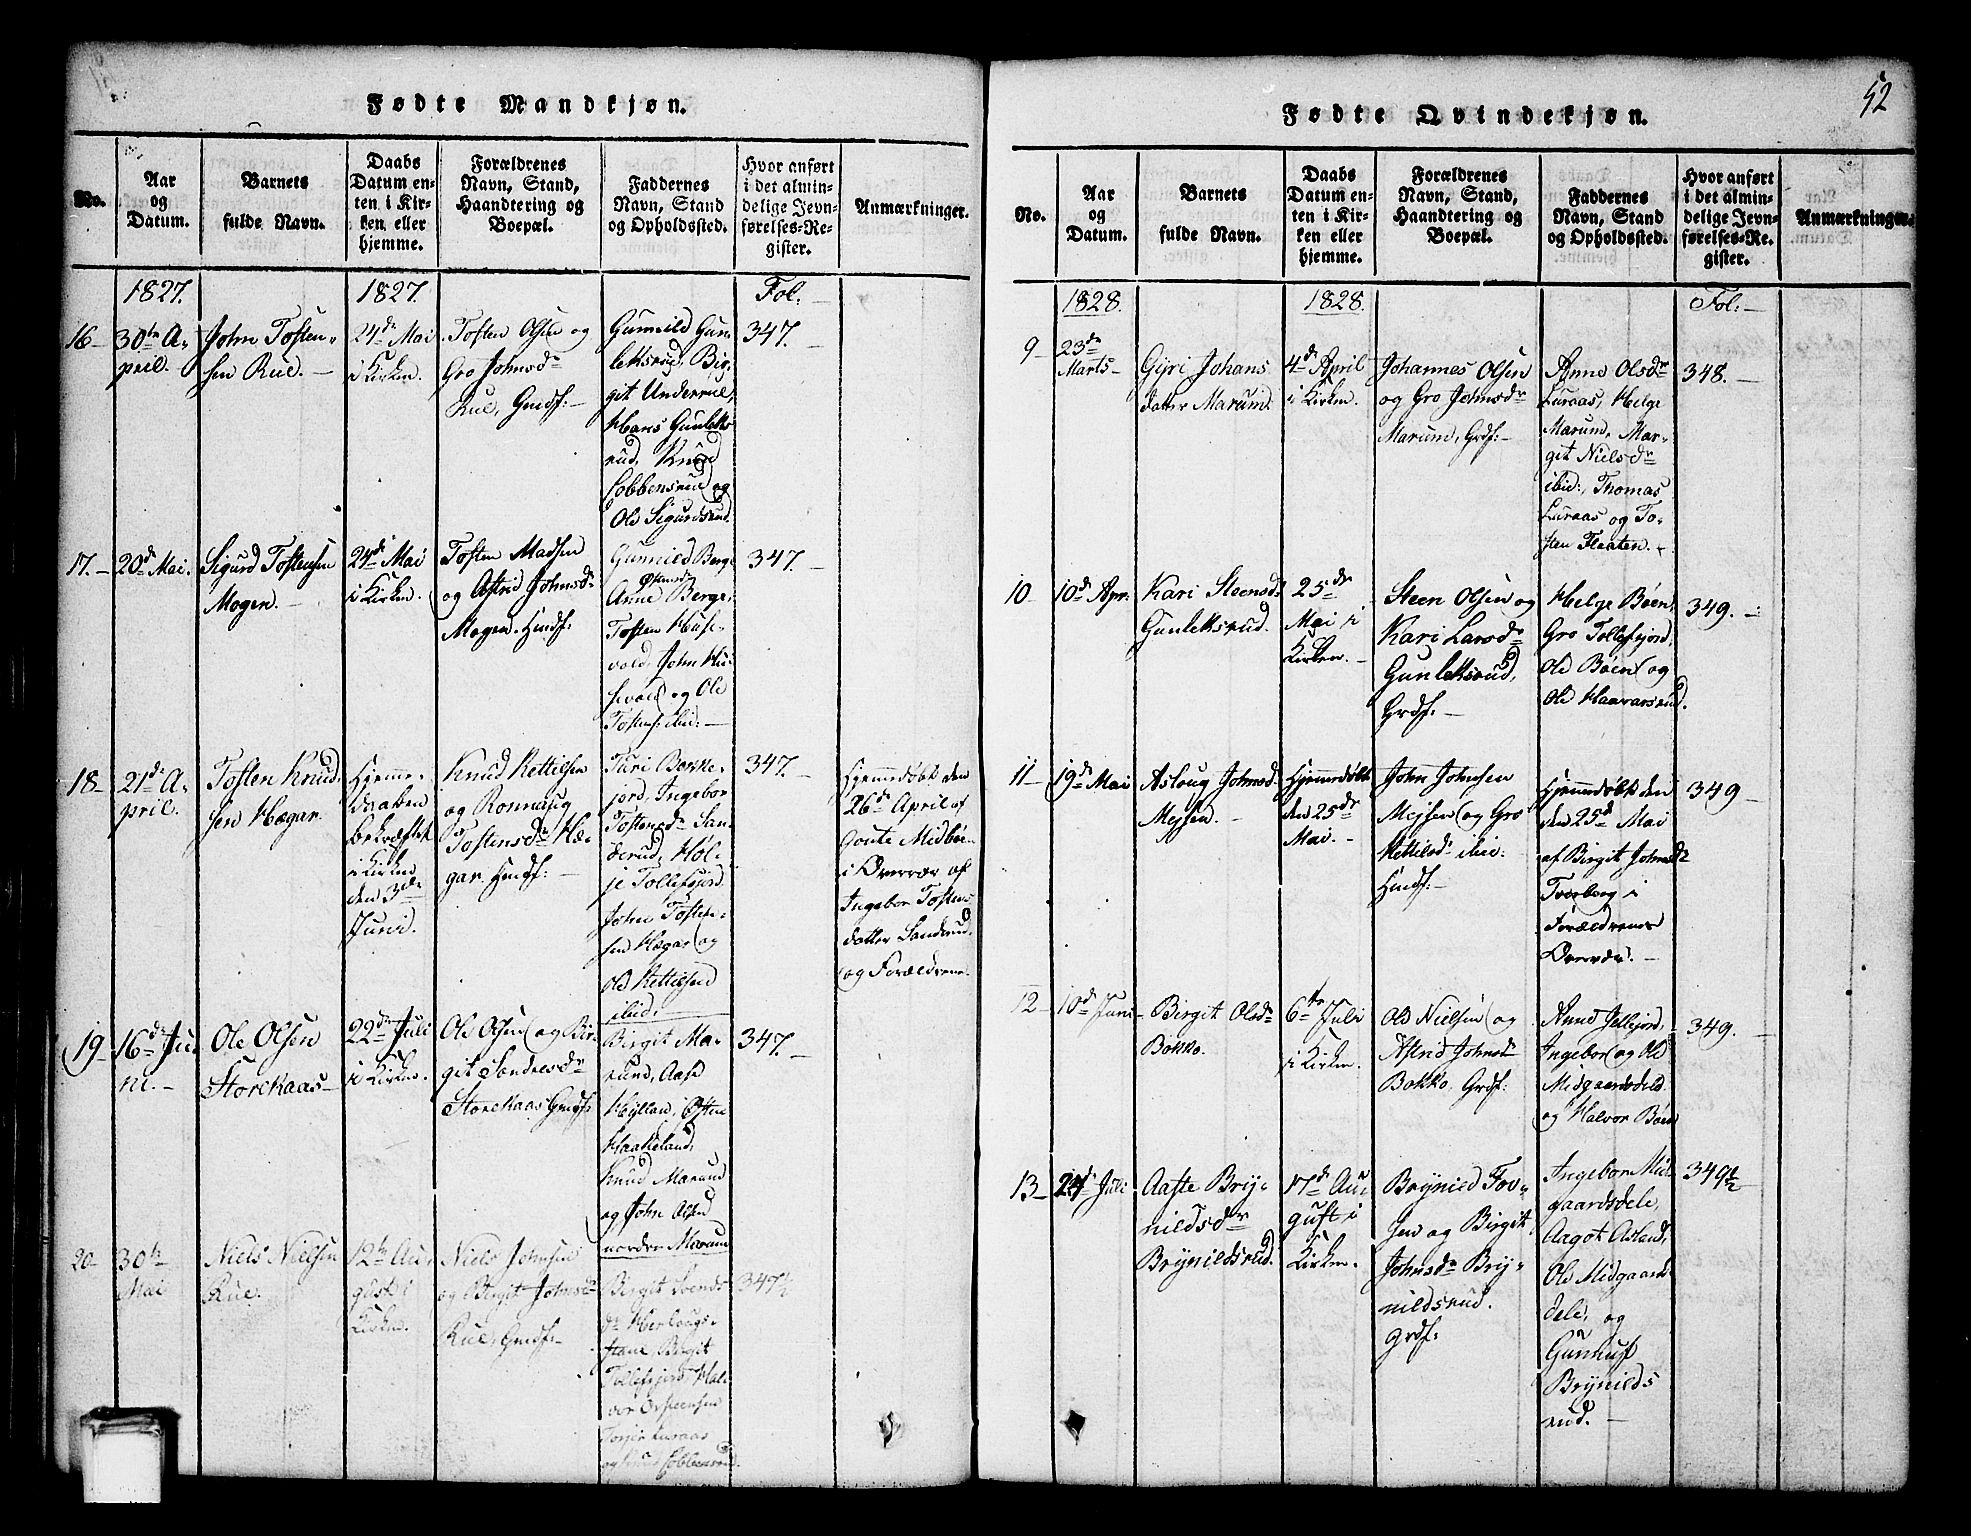 52
Fødte Mandkjøn.
No.
Aar
og
Datum.
Barnets
fulde Navn.
Daabs
Datum en-
ten i Kir-
ken eller
hjemme.
Forældrenes
Navn, Stand,
Haandtering og
Boepæl.
Faddernes
Navn, Stand
og Opholdssted.
Hvor anført
i det almin-
delige Jevn-
førelses-Re-
gister.
Anmærkninger.
1827.
1827.
Fol.
16
30te A-
pril.
John Tosten-
sen Rue.
24de Mai
i Kirken.
Tosten Olsen og
Gro Johnsdr
Rue, Gmdf:
Gunnild Gun-
leksrud, Bir-
git Underrue,
Hans Gunleks
rud, Knud
Lobbensrue og
Ole Sigurdsrud.
347.
17.
20de Mai.
Sigurd Tostensen
Mogen.
24de Mai
i Kirken.
Tosten Madsen
og Astrid Johnsdr
Mogen. Hmdf:
Gunnild Berge
Anne Berge,
Tosten Huse-
vold, John Hu-
sevold og Ole
Tostens: ibid:
347.
18
21de A-
pril.
Tosten Knud-
sen Hægar.
Hjemme-
daaben
bekræftet
i Kirken
den 3de
Juni.
Knud Kettilsen
og Ronnaug
Tostensdr Hæ-
gar. Hmdf:
Turi Bakke-
jord, Ingebor
Tostensdr San-
derud, Hol-
je Tollefsjord
John Tosten-
sen Hægar og
Ole Kettilsen
ibid:
347.
Hjemmedøbt den
26de April af
Goute Midbøe
i Overvær af
Ingebor Tostens
datter Sanderud
og Forældrene.
19
16de Ju-
ni.
Ole Olsen
Storekaas
22de Juli
i Kirken.
Ole Olsen og Bir-
git Sondresdr
Storekaas Gmdf:
Birgit Ma-
rund, Aase
Hylland, Østen
Haakeland,
Knud Marund
og John Olsen
nordre Marum
347.
20
30te
Mai
Niels Nielsen
Rue.
12te Au-
gust i
Kirken.
Niels Johnsen
og Birgit Johnsdr
Rue, Gmdf:
Birgit Svends
dr Herlougs-
Birgit
Tollefsjord Hal-
vor Øysteensen
Luraas
og Knud Lobbensrud.
347½
Fødte Qvindekjøn.
No.
Aar
og
Datum.
Barnets
fulde Navn.
Daabs
Datum en-
ten i Kir-
ken eller
hjemme.
Forældrenes
Navn, Stand,
Haandtering og
Boepæl.
Faddernes
Navn, Stand
og Opholdssted.
Hvor anført
i det almin-
delige Jevn-
førelses-Re-
gister.
Anmærkninger.
1828.
1828.
Fol:
9
23de
Marts
Gyri Johans
datter Marum.
4de April
i Kirken.
Johannes Olsen
og Gro Johnsdr
Marum, Grdf:
Anne Olsdr
Luraas, Helge
Marum, Mar-
git Nielsdr
ibid:, Thomas
Luraas og To-
sten Flaaten.
348.
10
10de Apr.
Kari Steensdr
Gunleksrud.
25de
Mai i
Kirken.
Steen Olsen og
Kari Larsdr
Gunleksrud,
Grdf:
Helge Bøen,
Gro Tollefsjord,
Ole Bøen og
Ole Haavarsrud.
349.
11
19de Mai
Aslaug Johnsd.
Mejsen.
Hjemmedøbt
den 25de
Mai.
John Johnsen
Mejsen og Gro
Kettilsdr ibid:
Hmdf:
Hjemmedøbt den
den 25de Mai
af Birgit Johnsdr
Tverberg i
Forældrenes
Overvær.
349
12
10de Juni
Birgit Olsdr
Bokko.
6te Juli
i Kirken.
Ole Nielsen og
Astrid Johnsdr
Bokko. Grdf:
Anne Jellejord,
Ingebor og Ole
Midgaardsdele
og Halvor Bøen
349.
13
24de Juli
Aaste Bry-
nildsdr
Brynildsrud.
17de Au-
gust i
Kirken.
Brynild Tov-
sen og Birgit
Johnsdr Bry-
nildsrud.
Grdf:
Ingebor Mid-
gaardsdele,
Aagot Asland,
Ole Midgaards-
dele, og
Gunnuf
Brynilds
rud.
349½